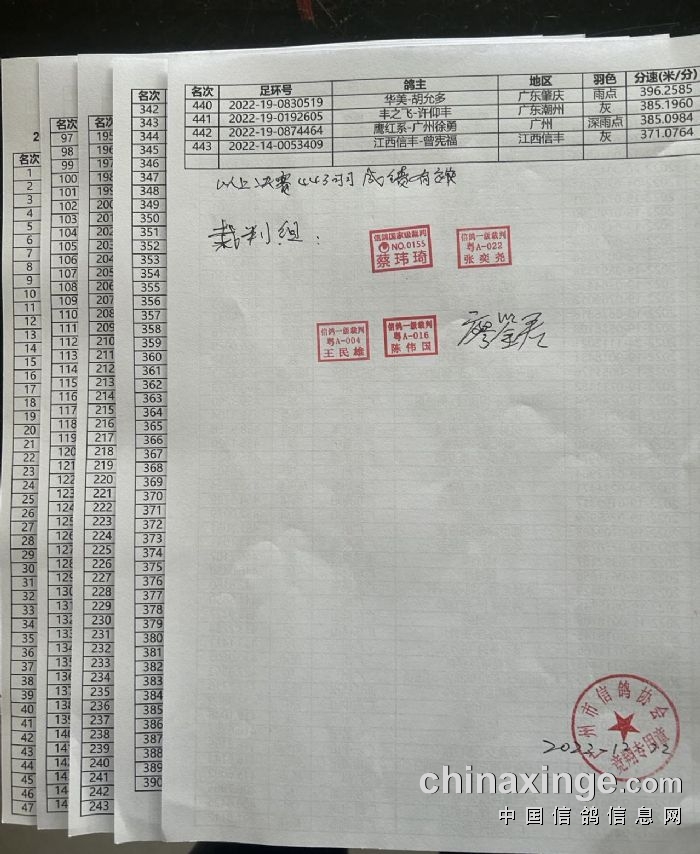 名次 足环号 鸽主 地区 羽色 分速(米/分)
440 2022-19-0830519 华美-胡允多 广东肇庆 雨点 396.2585
441 2022-19-0192605 丰之飞-许仰丰 广东潮州 灰 385.1960
442 2022-19-0874464 鹰红系-广州徐勇 广州 深雨点 385.0984
443 2022-14-0053409 江西信丰-曾宪福 江西信丰 灰 371.0764
以上决赛443羽成绩有效
裁判组：
信鸽国家级裁判
NO.0155
蔡玮琦
信鸽一级裁判
粤A-022
张奕尧
信鸽一级裁判
粤A-004
王民雄
信鸽一级裁判
粤A-016
陈伟国
州市信鸽协会
竞翔专用章
2022-12-22
chinaxinge.com
中国信鸽信息网
2
名次
1
2
3
4
5
6
7
8
9
10
11
12
13
14
15
16
17
18
19
20
21
22
23
24
25
26
27
28
29
30
31
32
33
34
35
36
37
38
39
40
41
42
43
44
45
46
47
97
98
99
100
101
102
103
104
105
106
107
108
109
110
111
112
113
114
115
116
117
118
119
120
121
122
123
124
125
126
127
128
129
130
131
132
133
134
135
136
137
138
139
140
141
142
143
195
198
199
200
201
202
203
204
205
206
207
208
209
210
211
212
213
214
215
216
217
218
219
220
221
222
223
224
225
226
227
228
229
230
231
232
233
234
235
236
237
238
239
240
241
242
243
名次
342
343
344
345
346
347
348
349
350
351
352
353
354
355
356
357
358
359
360
361
362
363
364
365
366
367
368
369
370
371
372
373
374
375
376
377
378
379
380
381
382
383
384
385
386
387
388
389
390